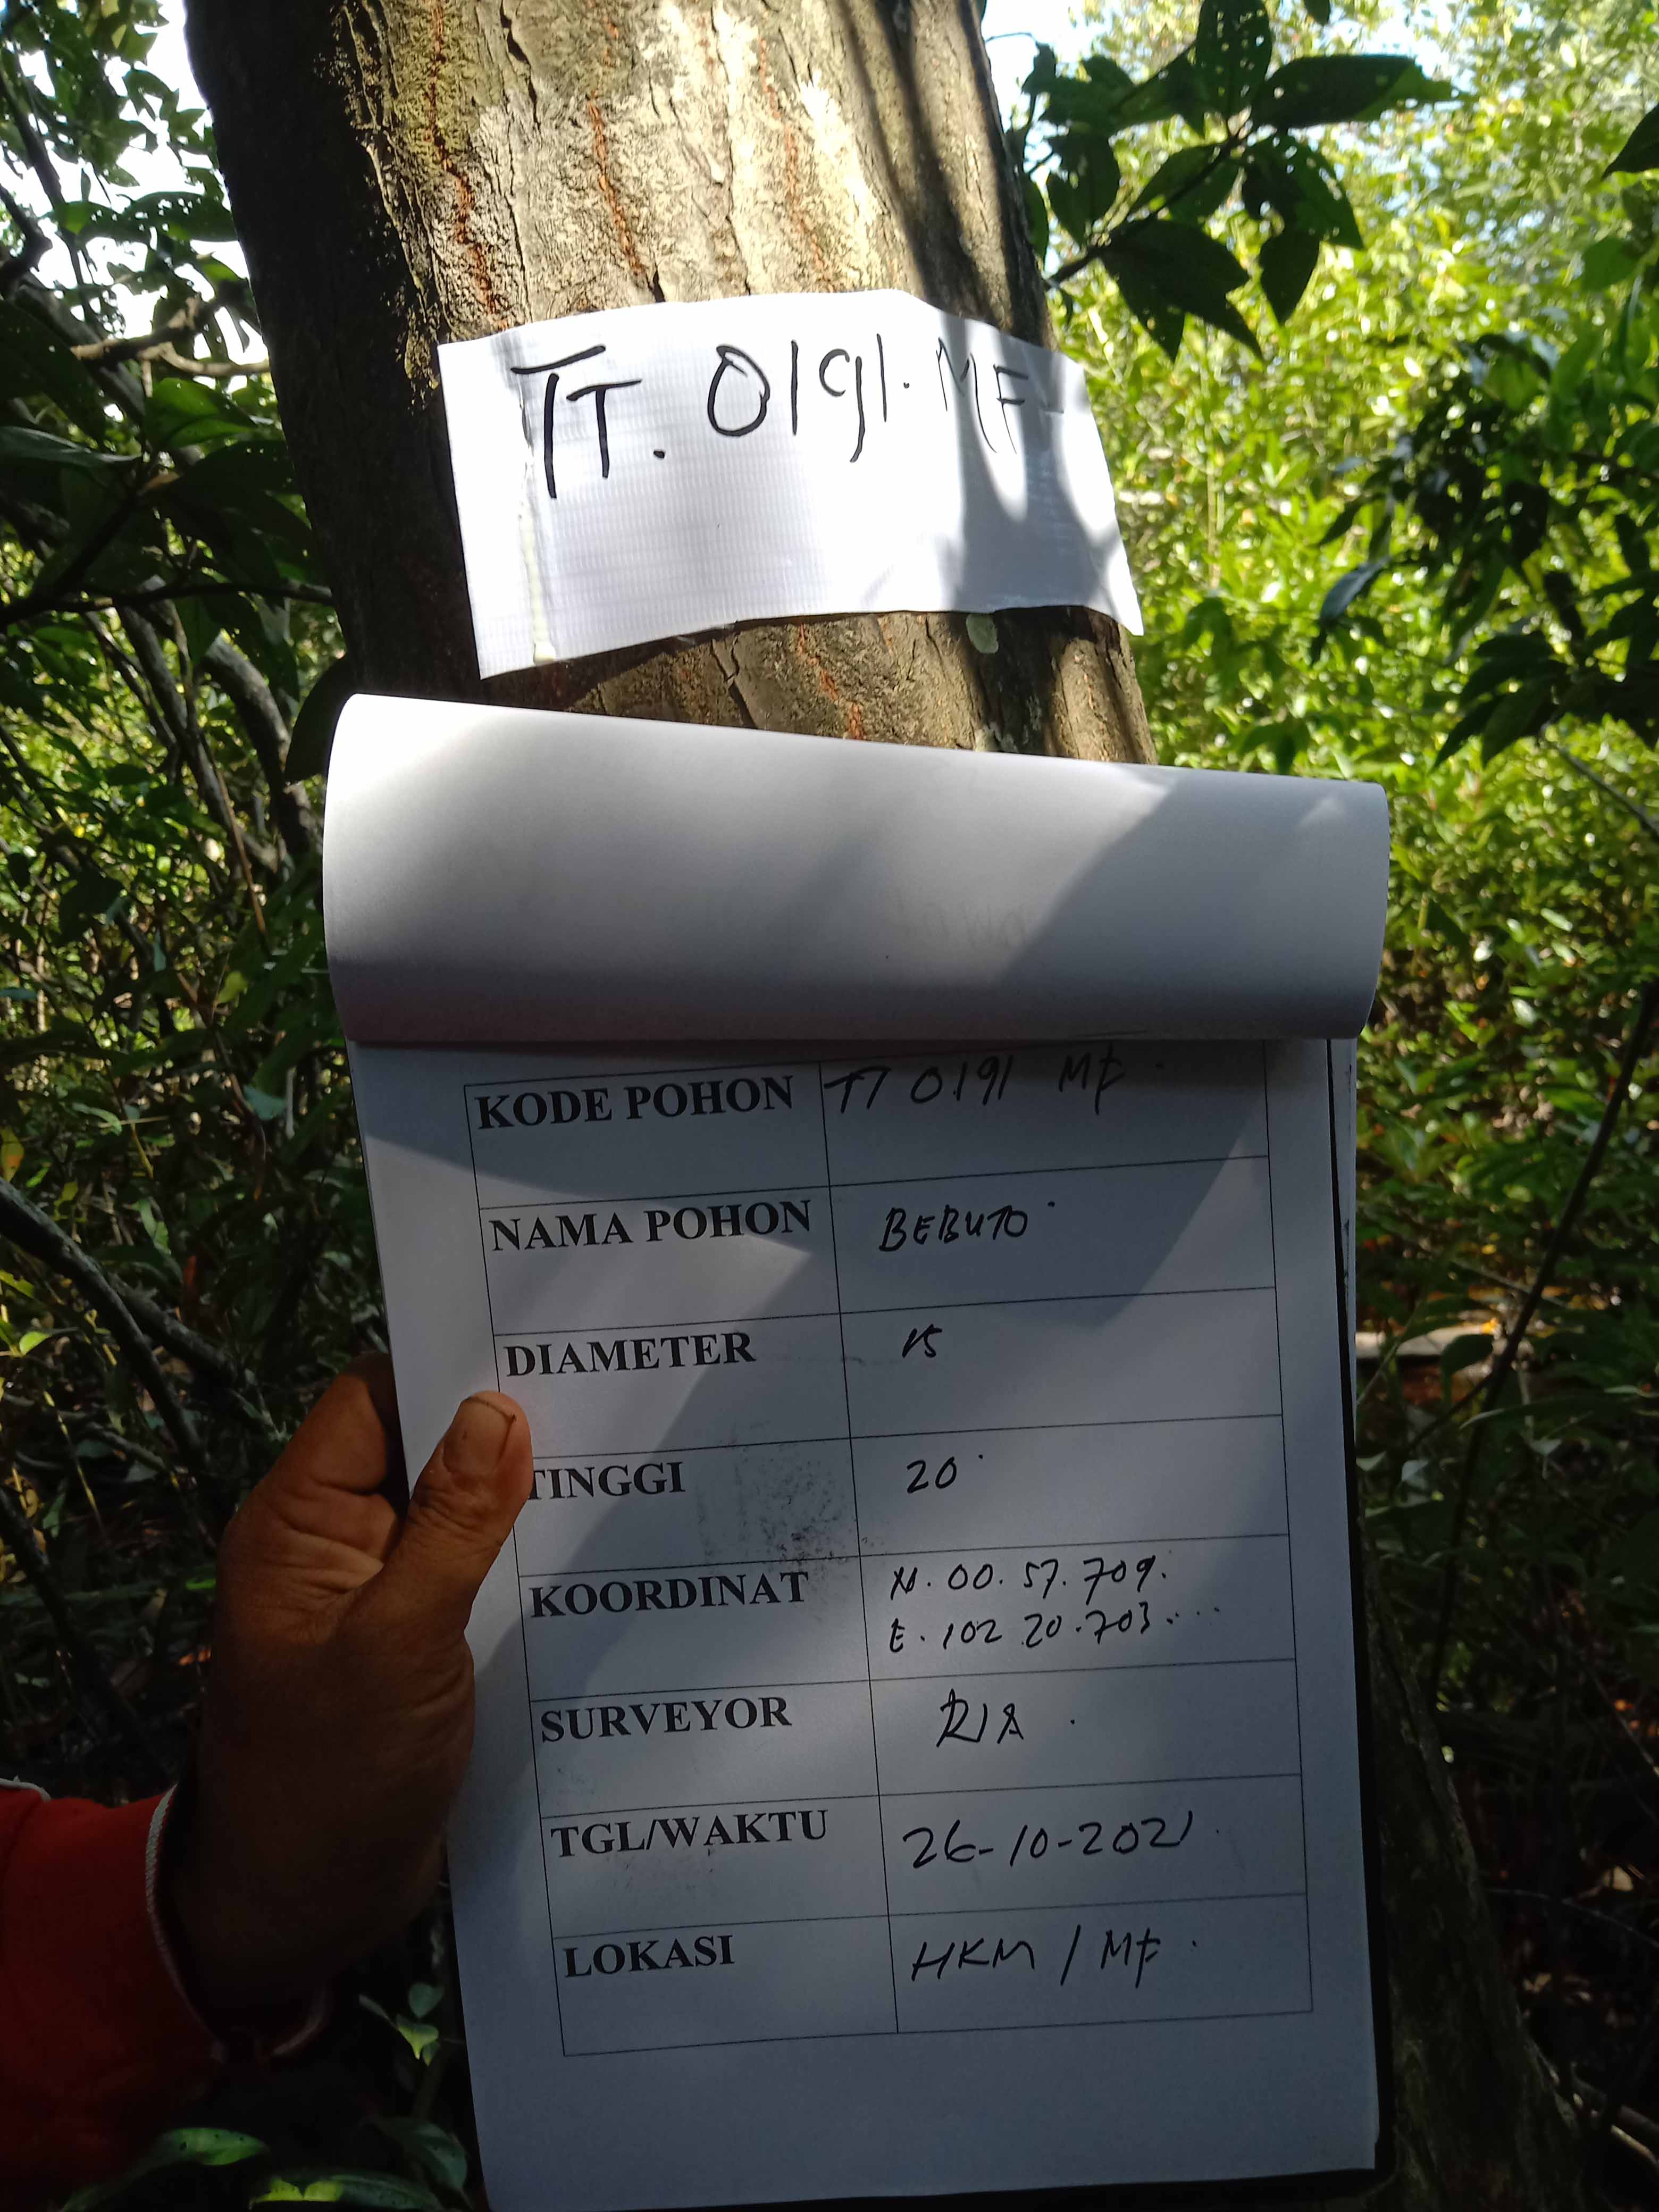 TT. 0191. MF
KODE POHON TT 0191 MF.
NAMA POHON BEBUTO
DIAMETER 15
TINGGI 20
KOORDINAT N. 00. 57. 709.
E. 102 20. 703....
SURVEYOR RIA.
TGL/WAKTU 26-10-2021
LOKASI HKM / MF.